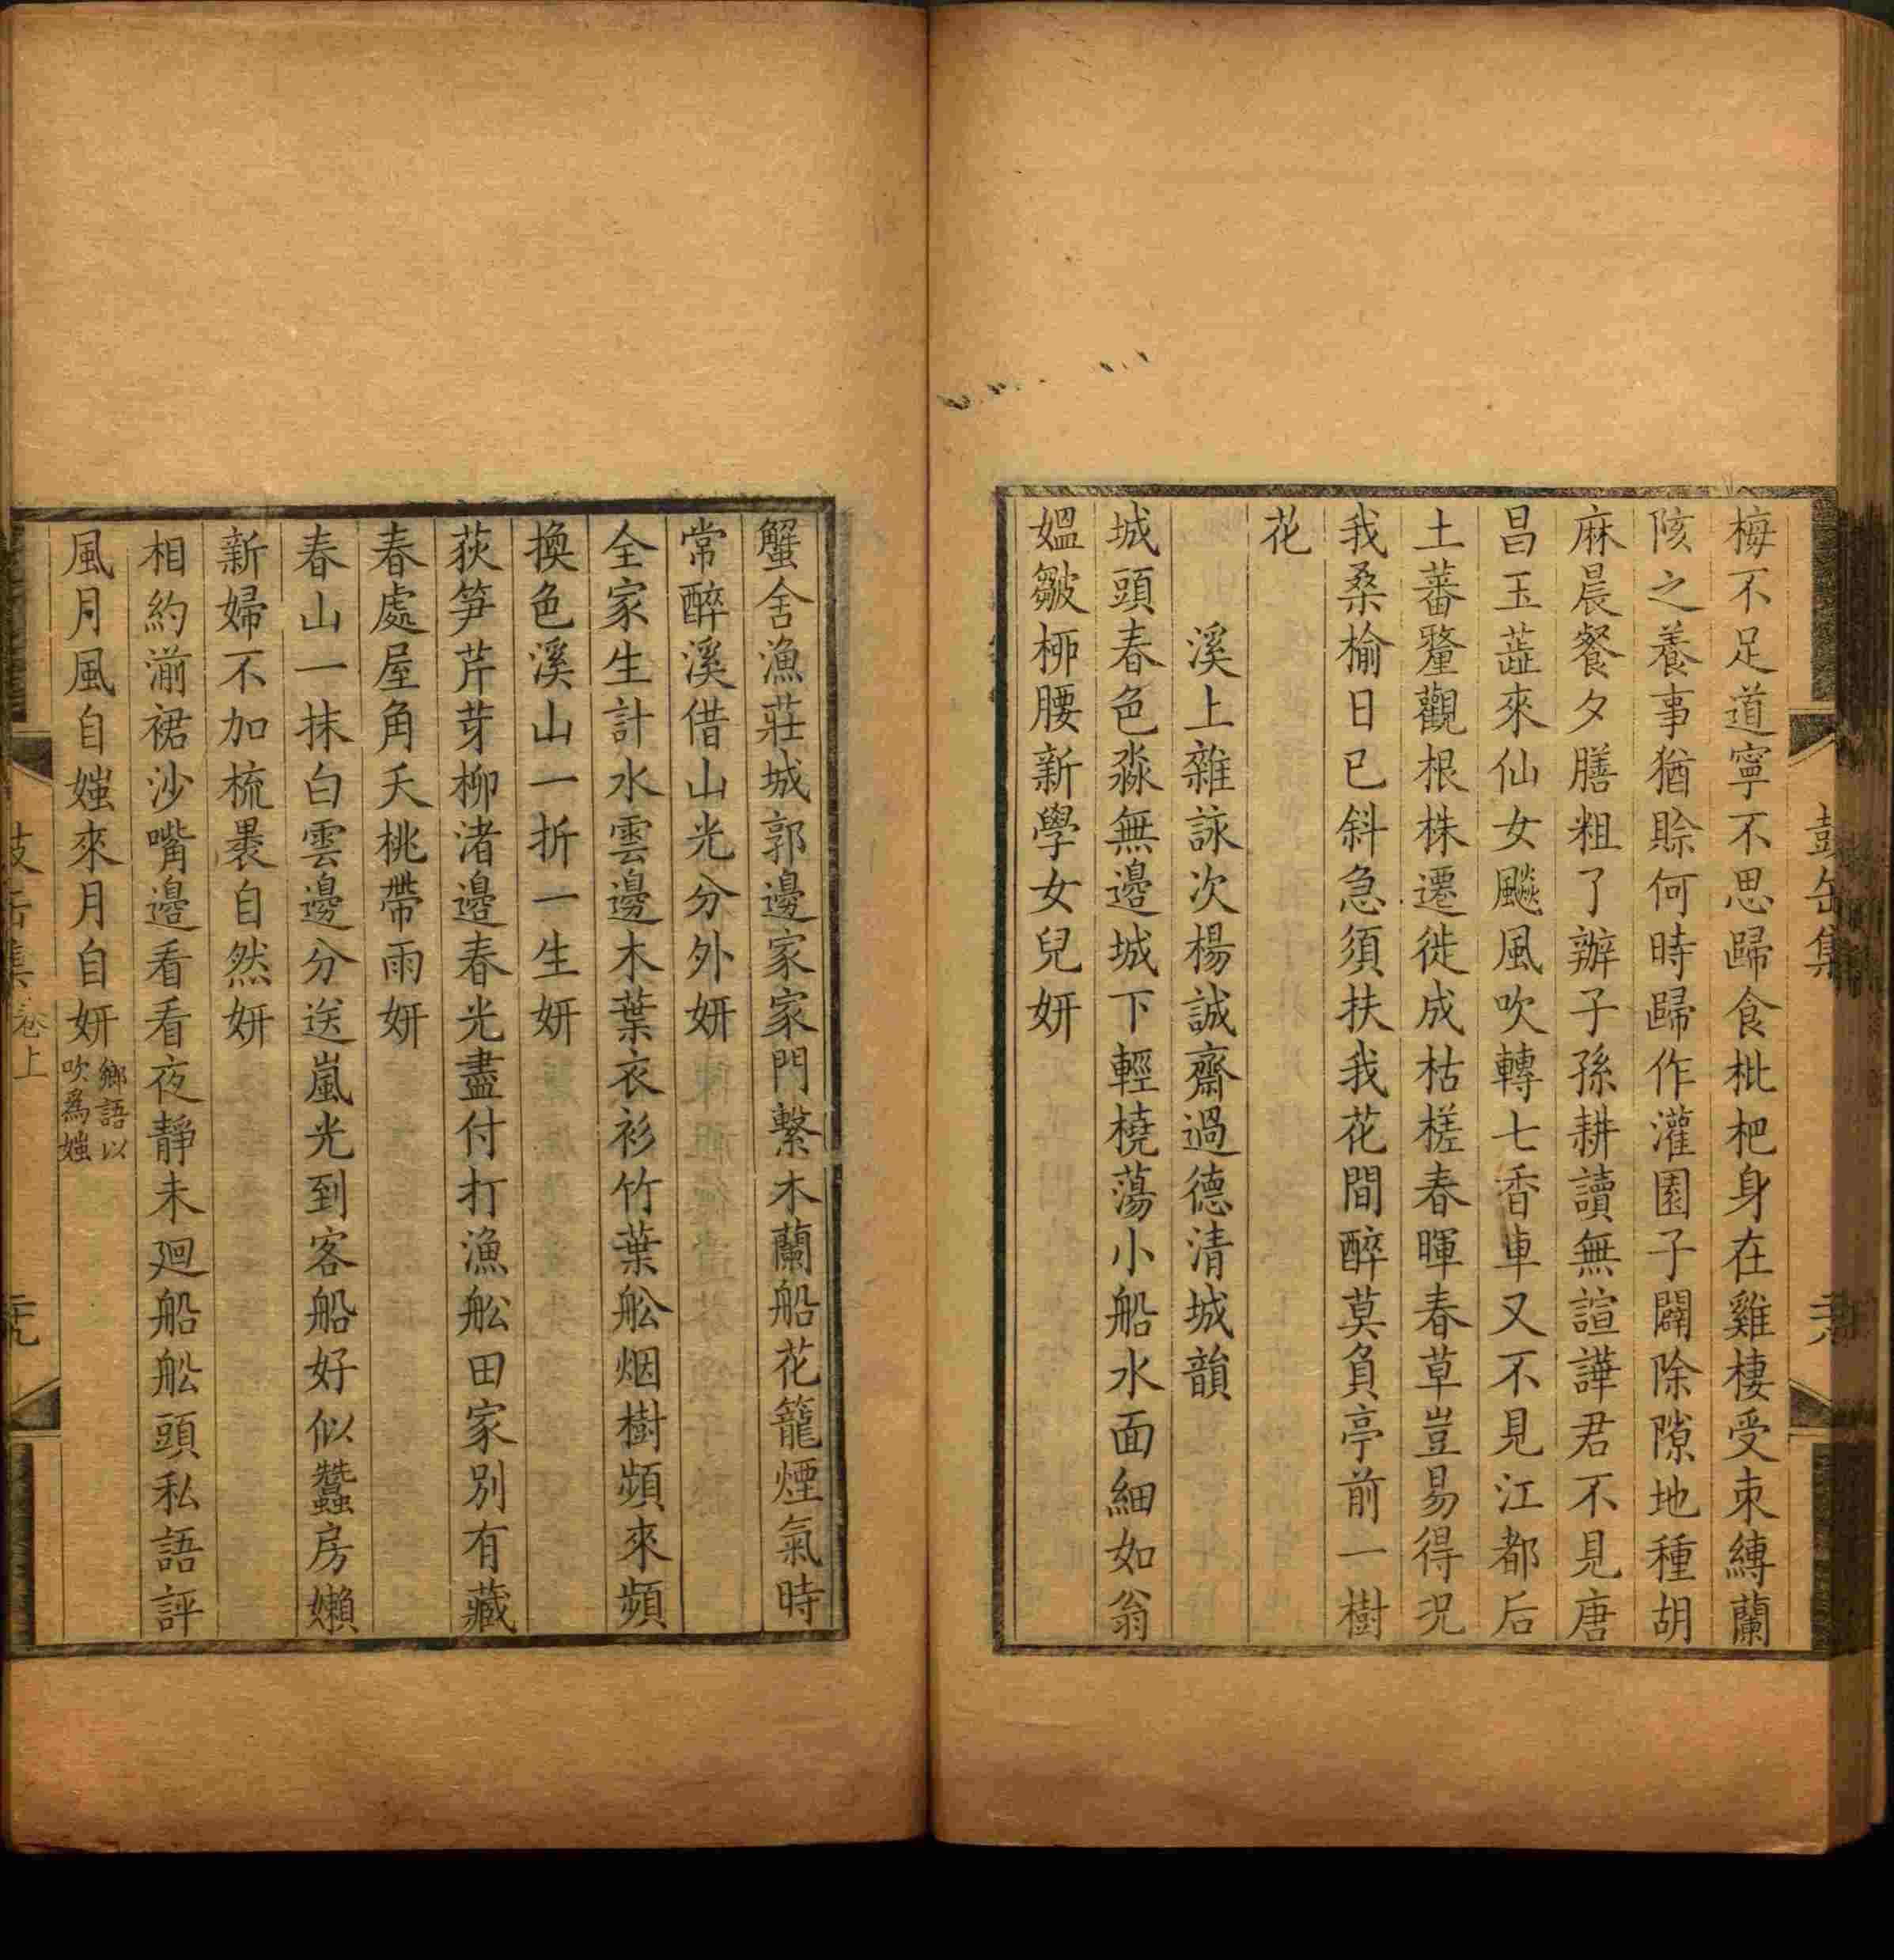 梅不足道寧不思歸食枇杷身在雞棲受束縛蘭
陔之養事猶賖何時歸作灌園子闢除隙地種胡
麻晨餐夕膳粗了辦子孫耕讀無諠譁君不見唐
昌玉蕋來仙女飈風吹轉七香車又不見江都后
土蕃釐觀根株遷徙成枯槎春暉春草豈易得況
我桑榆日已斜急須扶我花間醉莫負亭前一樹
花
溪上雜詠次楊誠齋過德清城韻
城頭春色淼無邊城下輕橈蕩小船水面細如翁
媼皺栁腰新學女兒妍
蟹舍漁莊城郭邊家家門繫木蘭船花籠煙氣時
常醉溪借山光分外妍
全家生計水雲邊木葉衣衫竹葉舩烟樹頻來頻
換色溪山一折一生妍
荻笋芹芽柳渚邊春光盡付打漁舩田家別有藏
春處屋角夭桃帶雨妍
春山一抹白雲邊分送嵐光到客船好似蠶房嬾
新婦不加梳裹自然妍
相約湔裙沙嘴邊看看夜靜未廻船舩頭私語評
風月風自媸來月自妍
鄉語以
吹為媸
集卷上